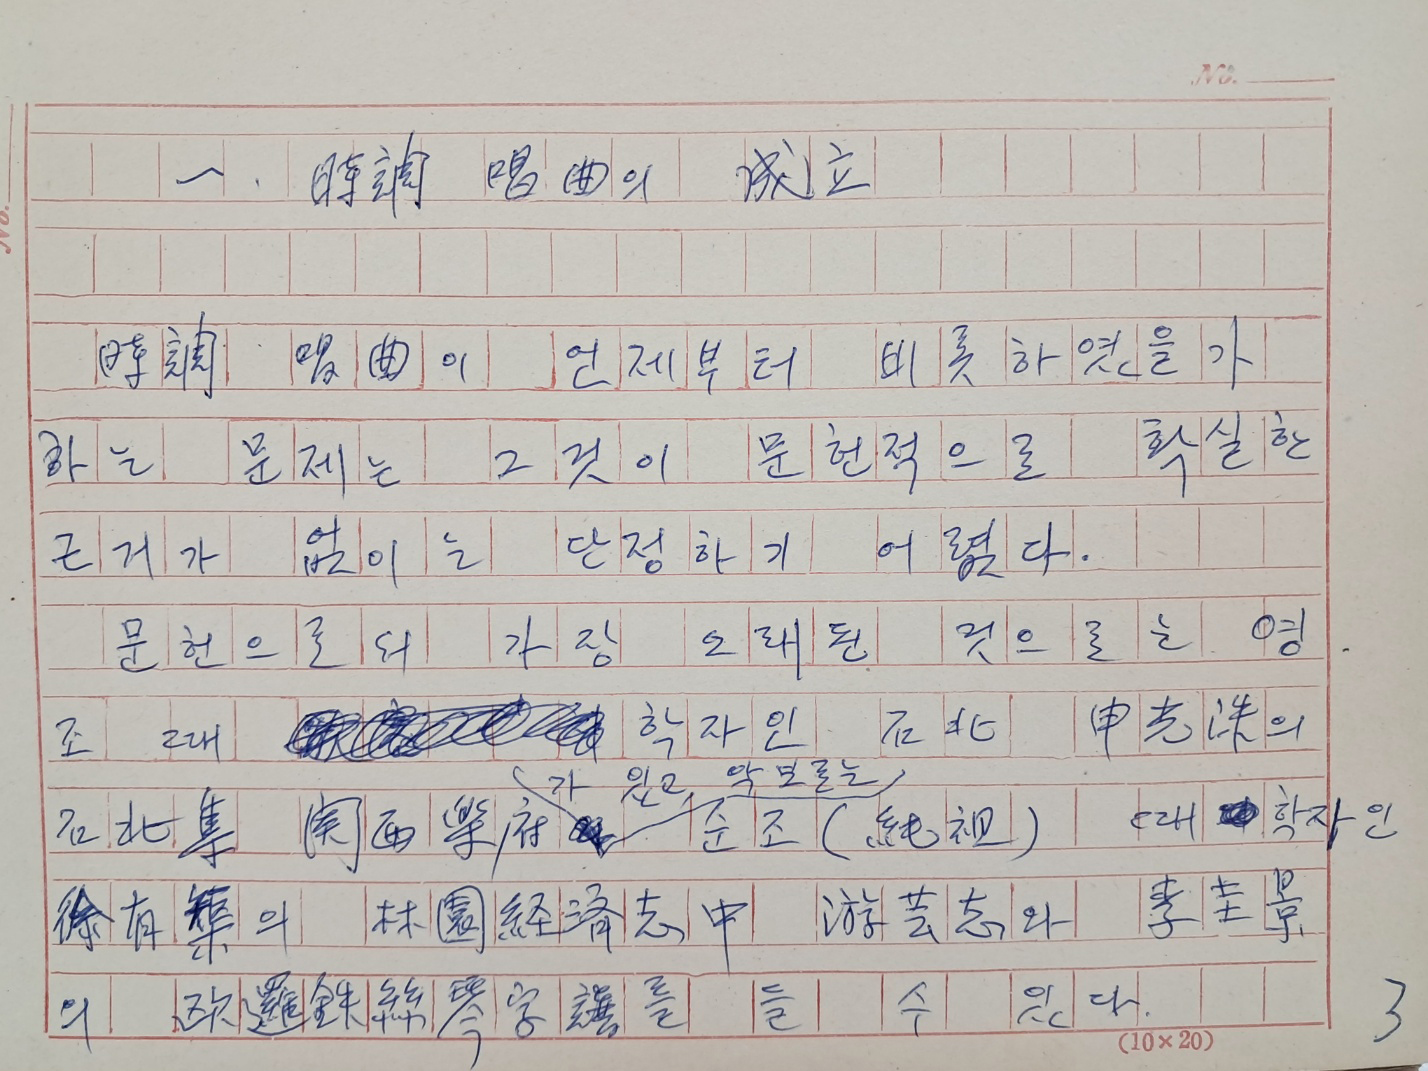 No.
一. 時調 唱曲의 成立
時調 唱曲이 언제부터 비롯하엿을가
하는 문제는 그것이 문헌적으로 확실한
근거가 없이는 단정하기 어렵다.
문헌으로서 가장 오래된 것으로는 영
조 때 학자인 石北 申光洙의
가 있고, 악보로는
石北集 関西楽府 순조(純祖) 때 학자인
徐有榘의 林園経済志中 游芸志와 李圭景
의 欧邏鉄絲琴字譜를 들 수 있다.
(10×20)
3
No.